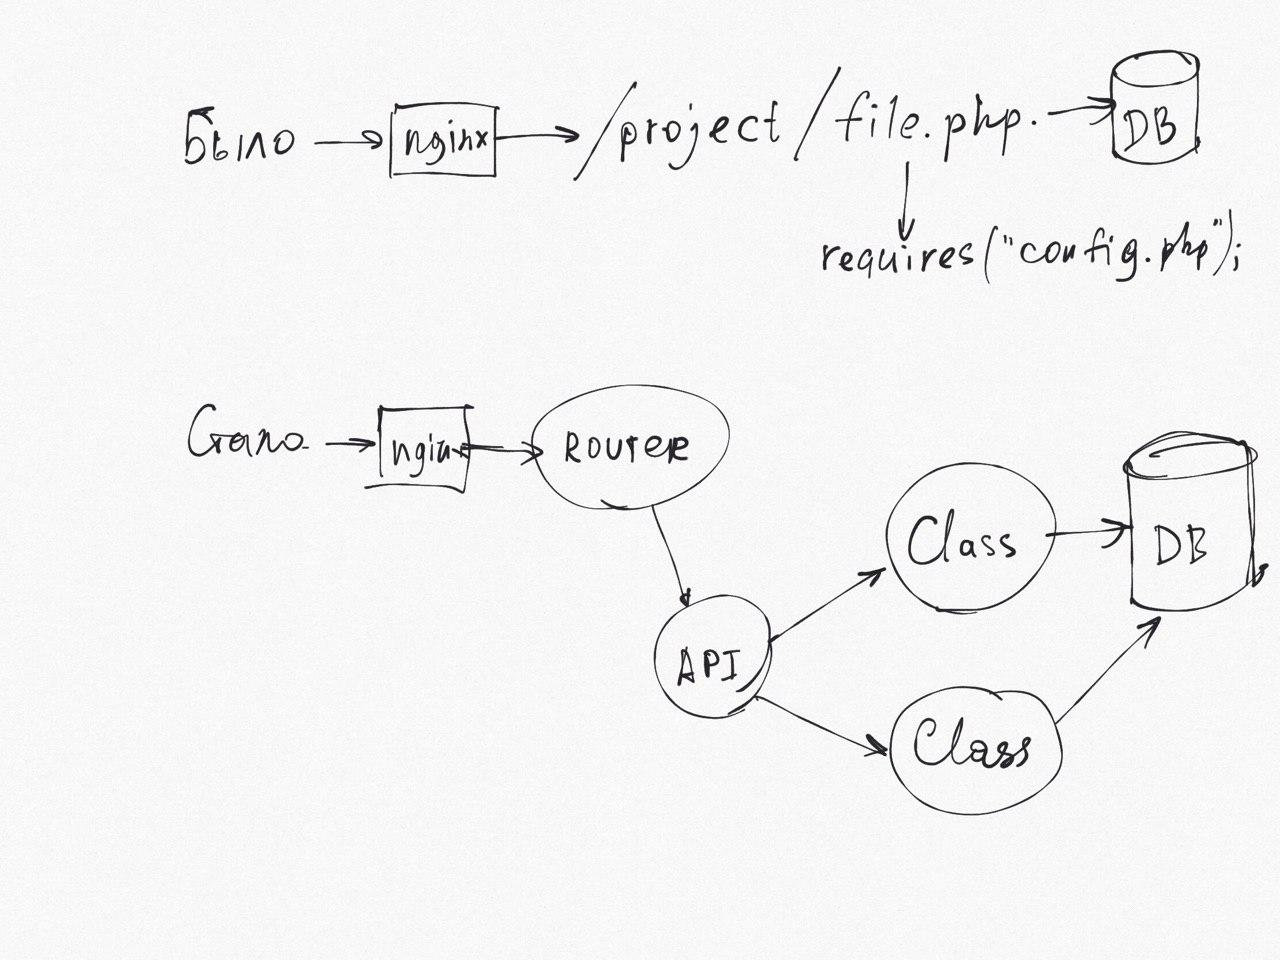 Было → nginx → /project/file.php. → DB
requires("config.php");
Стало → nginx → ROUTER
Class → DB
API
Class